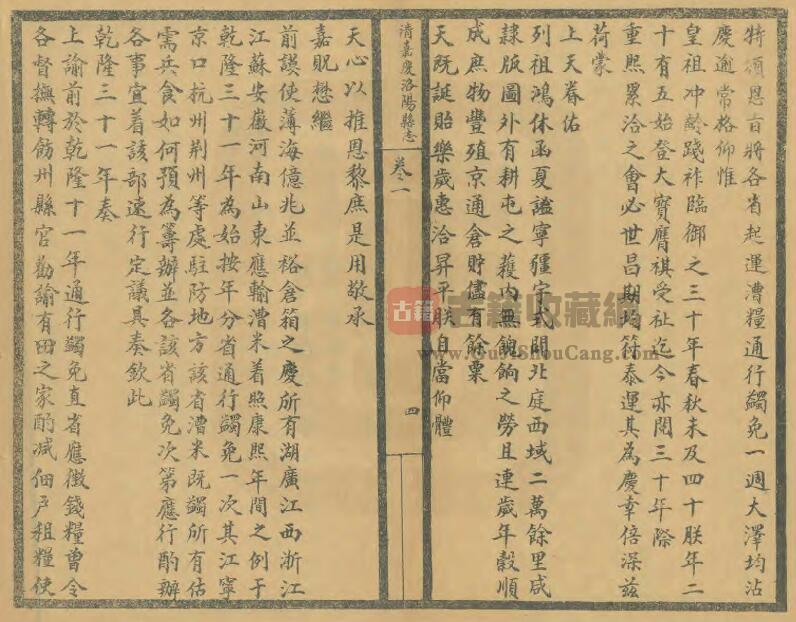 特頒恩旨將各省起運漕糧通行蠲免一週大澤均沾
慶逾常格仰惟
皇祖冲齡踐祚臨御之三十年春秋未及四十朕年二
十有五始登大寶膺祺受祉迄今亦閱三十年際
重熙累洽之會必世昌期均符泰運其為慶幸倍深茲
荷蒙
上天眷佑
列祖鴻休函夏謐寧疆宇式闢北庭西域二萬餘里咸
隸版圖外有耕屯之穫內無餽餉之勞且連歲年穀順
成庶物豐殖京通倉貯儘有餘粟
天既誕貽樂歲惠洽昇平朕自當仰體
清嘉慶洛陽縣志
卷一
四
天心以推恩黎庶是用敬承
嘉貺懋繼
前謨使薄海億兆並裕倉箱之慶所有湖廣江西浙江
江蘇安徽河南山東應輸漕米着照康熙年間之例于
乾隆三十一年為始按年分省通行蠲免一次其江寧
京口杭州荆州等處駐防地方該省漕米既蠲所有估
需兵食如何預為籌辦並各該省蠲免次第應行酌辦
各事宜着該部速行定議具奏欽此
乾隆三十一年奏
上諭前於乾隆十一年通行蠲免直省應徵錢糧曾令
各督撫轉飭州縣官勸諭有田之家酌減佃戶租糧使
古籍
古籍收藏網
www.GuJiShouCang.com